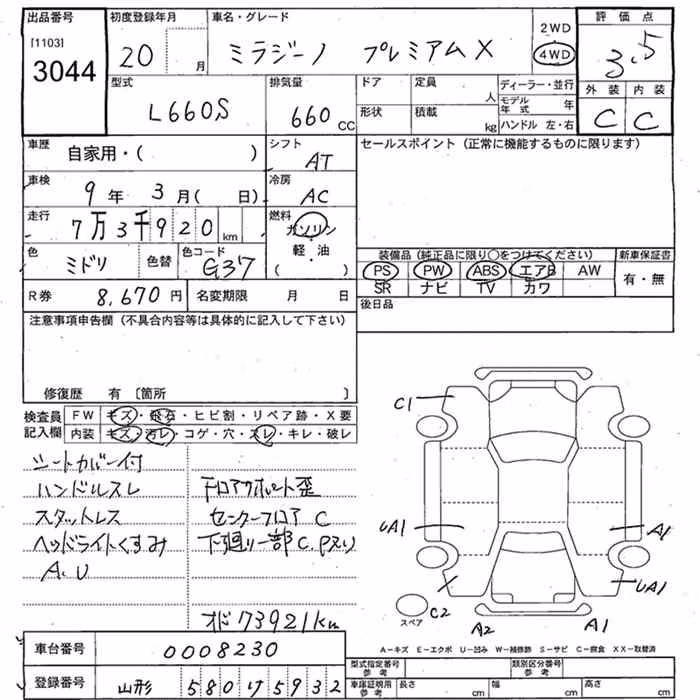 出品番号
[1103]
3044
初度登録年月
20 月
車名・グレード
ミラジーノ プレミアムX
2WD
4WD
評価点
3.5
外装 内装
C C
型式
L660S
排気量
660 CC
ドア
形状
定員
人
積載
kg
ディーラー・並行
モデル年式 年
ハンドル 左・右
車歴
自家用・( )
シフト
AT
セールスポイント(正常に機能するものに限ります)
車検
9年 3月( 日)
冷房
AC
走行
7万3千920km
燃料
ガソリン
軽・油
( )
色
ミドリ
色替
色コード
G37
装備品(純正品に限り○をつけてください)
PS PW ABS エアB AW
SR ナビ TV カワ
新車保証書
有・無
R券
8,670円
名変期限 月 日
後日品
注意事項申告欄(不具合内容等は具体的に記入して下さい)
修復歴 有〔箇所 〕
検査員記入欄
FW キズ・飛石・ヒビ割・リペア跡・X要
内装 キズ・汚レ・コゲ・穴・スレ・キレ・破レ
シートカバー付
ハンドルスレ
スタットレス
ヘッドライトくすみ
A.U
Fロアサポート歪
センターフロア C
下廻り一部C.Pヌリ
オド73921km
C1
UA1
A1
UA1
C2
A2
A1
スペア
A-キズ E-エクボ U-凹み W-補修跡 S-サビ C-腐食 XX-取替済
車台番号
0008230
登録番号
山形 580 け 5932
型式指定番号参考
類別区分番号参考
車庫証明用参考
長さ cm
幅 cm
高さ cm